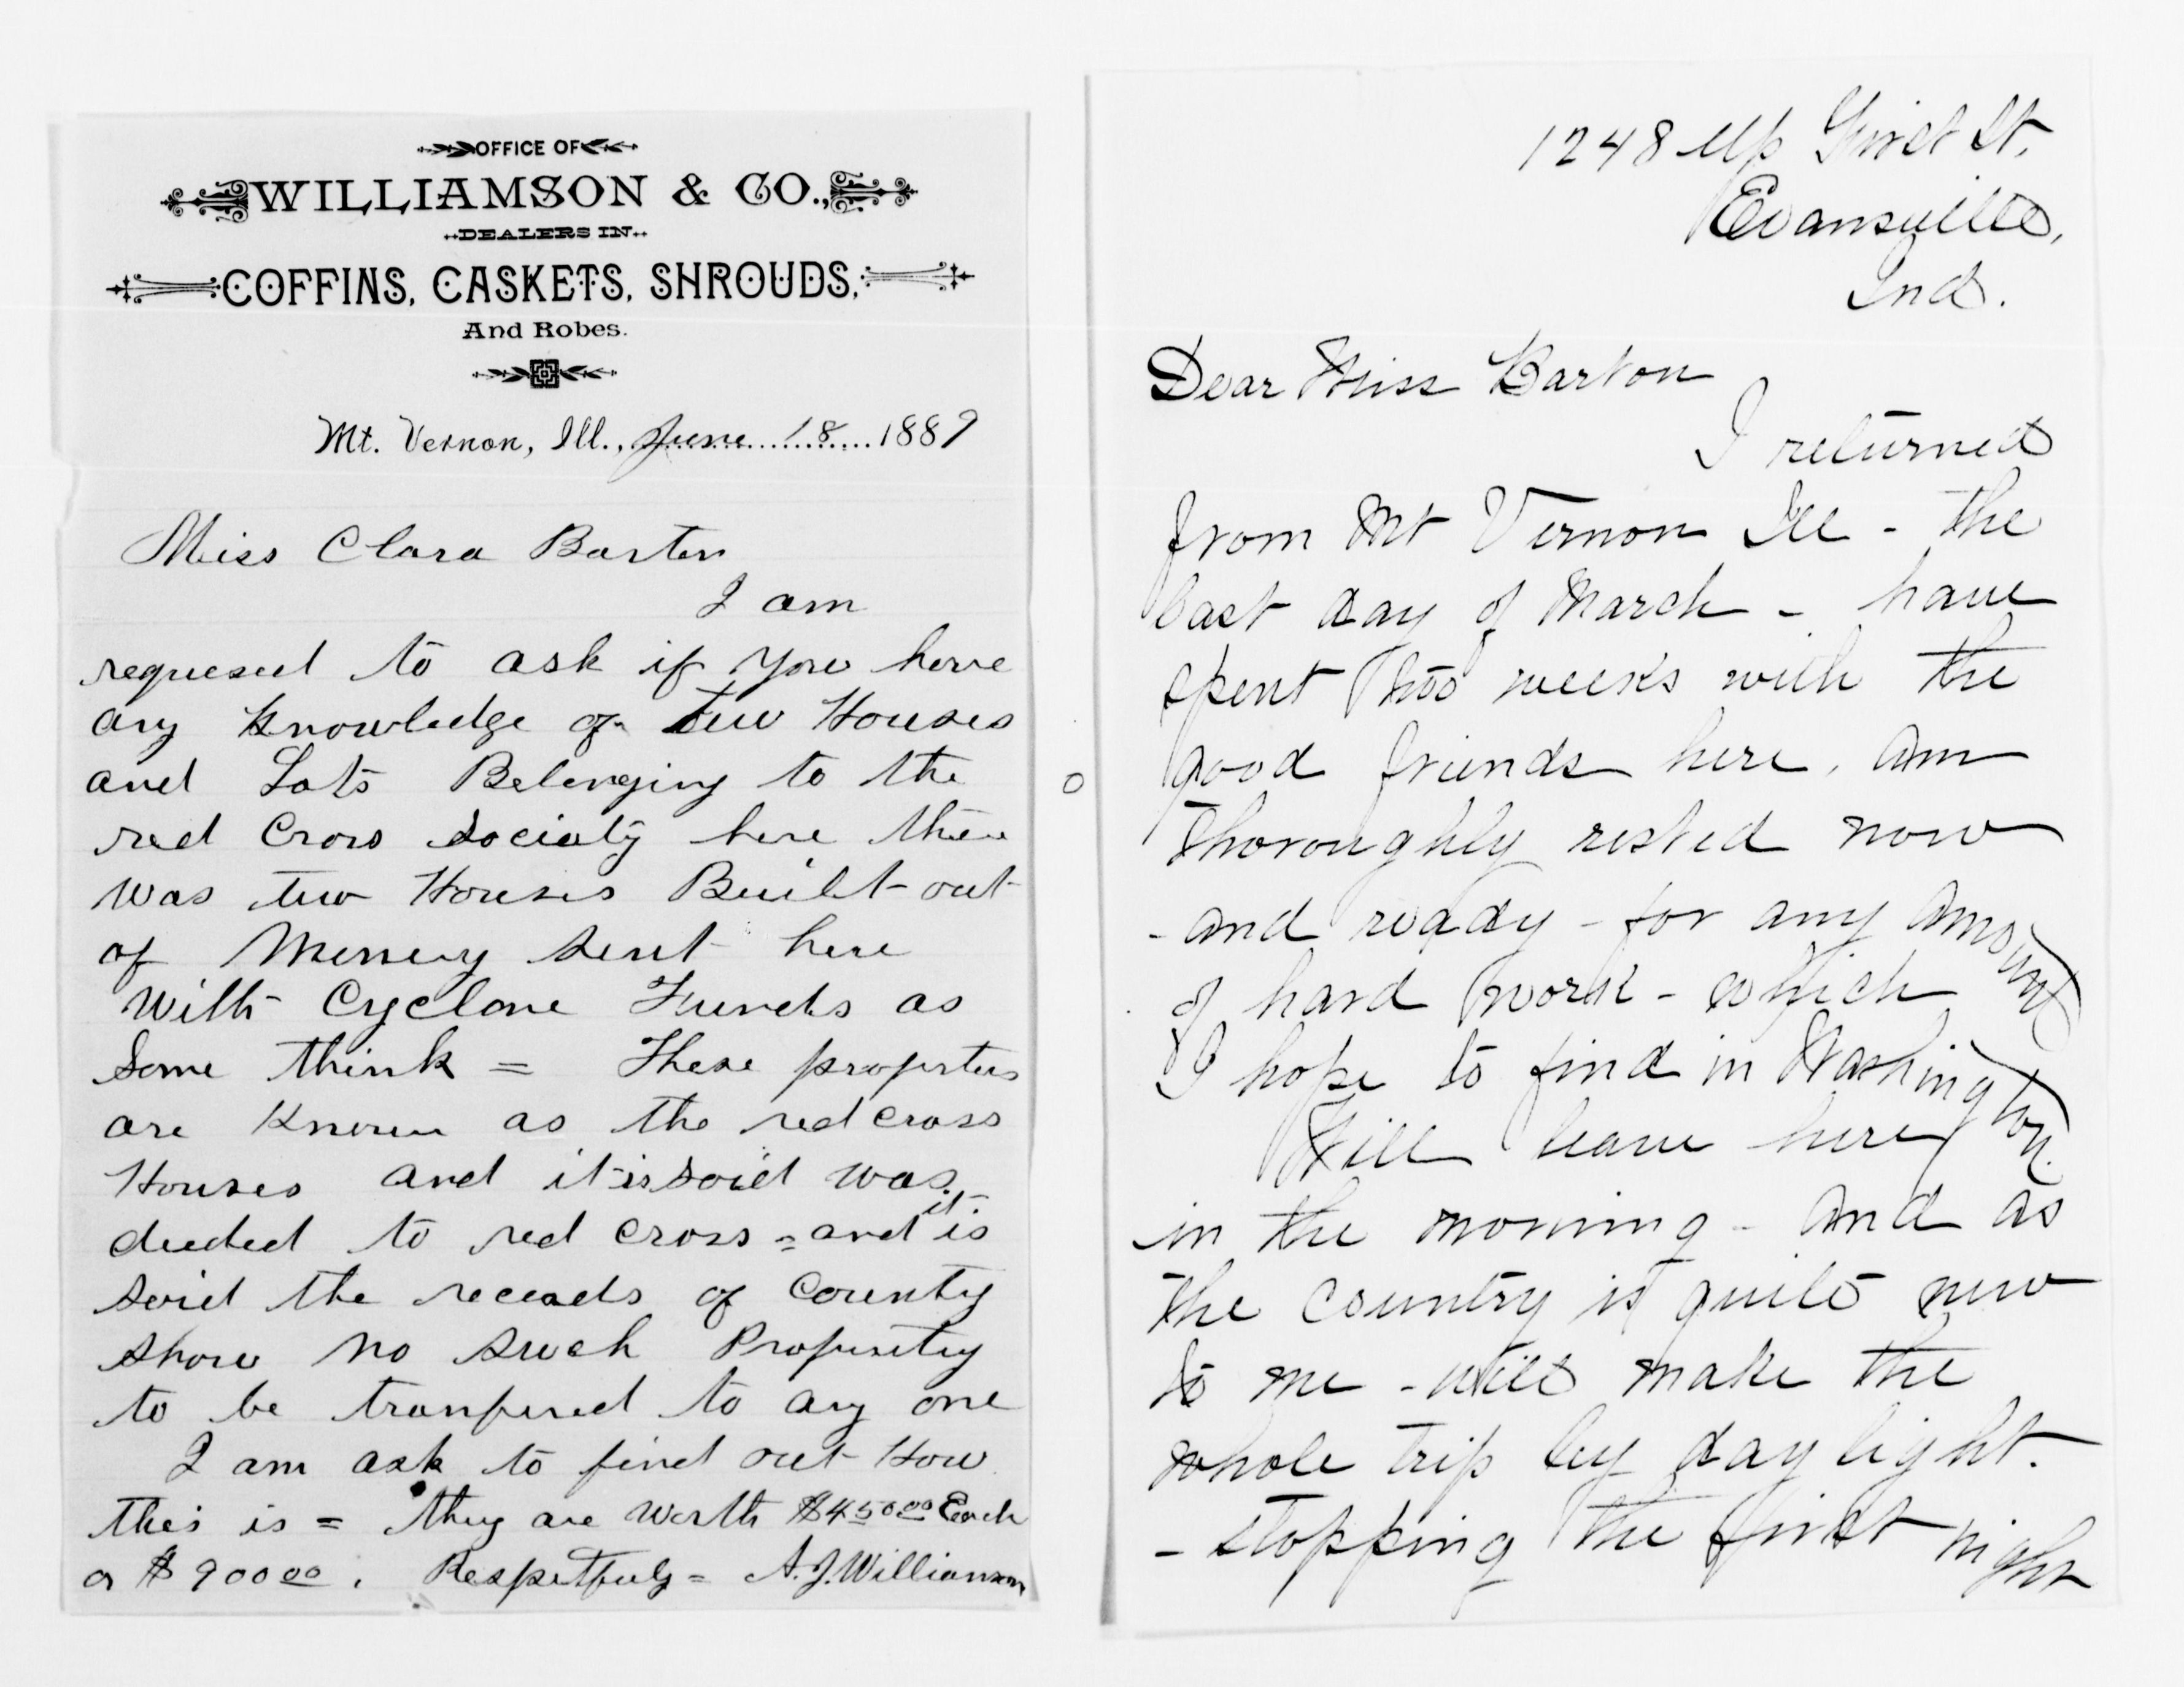 OFFICE OF
WILLIAMSON & CO.,
DEALERS IN
COFFINS, CASKETS, SHROUDS,
And Robes.
Mt. Vernon, Ill., June 18 1889
Miss Clara Barton
I am
requesed to ask if you have
any knowledge of two Houses
and Lots Belonging to the
red Cross Sociaty here there
was two Houses Built out
of Monney sent here
With Cyclone Funds as
Some think = These propertus
are Known as the red cross
Houses and it is said was
deeded to red cross = and it is
said the records of County
show no such Propertey
to be tranfured to any one
I am ask to find out How
this is = they are worth $450.00 Each
or $900.00. Respetfuly = A.J. Williamson
1248 Up First St,
Evansville,
Ind.
Dear Miss Barton
I returned
from Mt Vernon Ill - the
last day of March - have
spent two weeks with the
good friends here, am
thoroughly rested now
- and ready - for any amount
of hard work - which
I hope to find in Washington.
Will leave here
in the morning - and as
the country is quite new
to me - will make the
whole trip by day light.
- stopping the first night